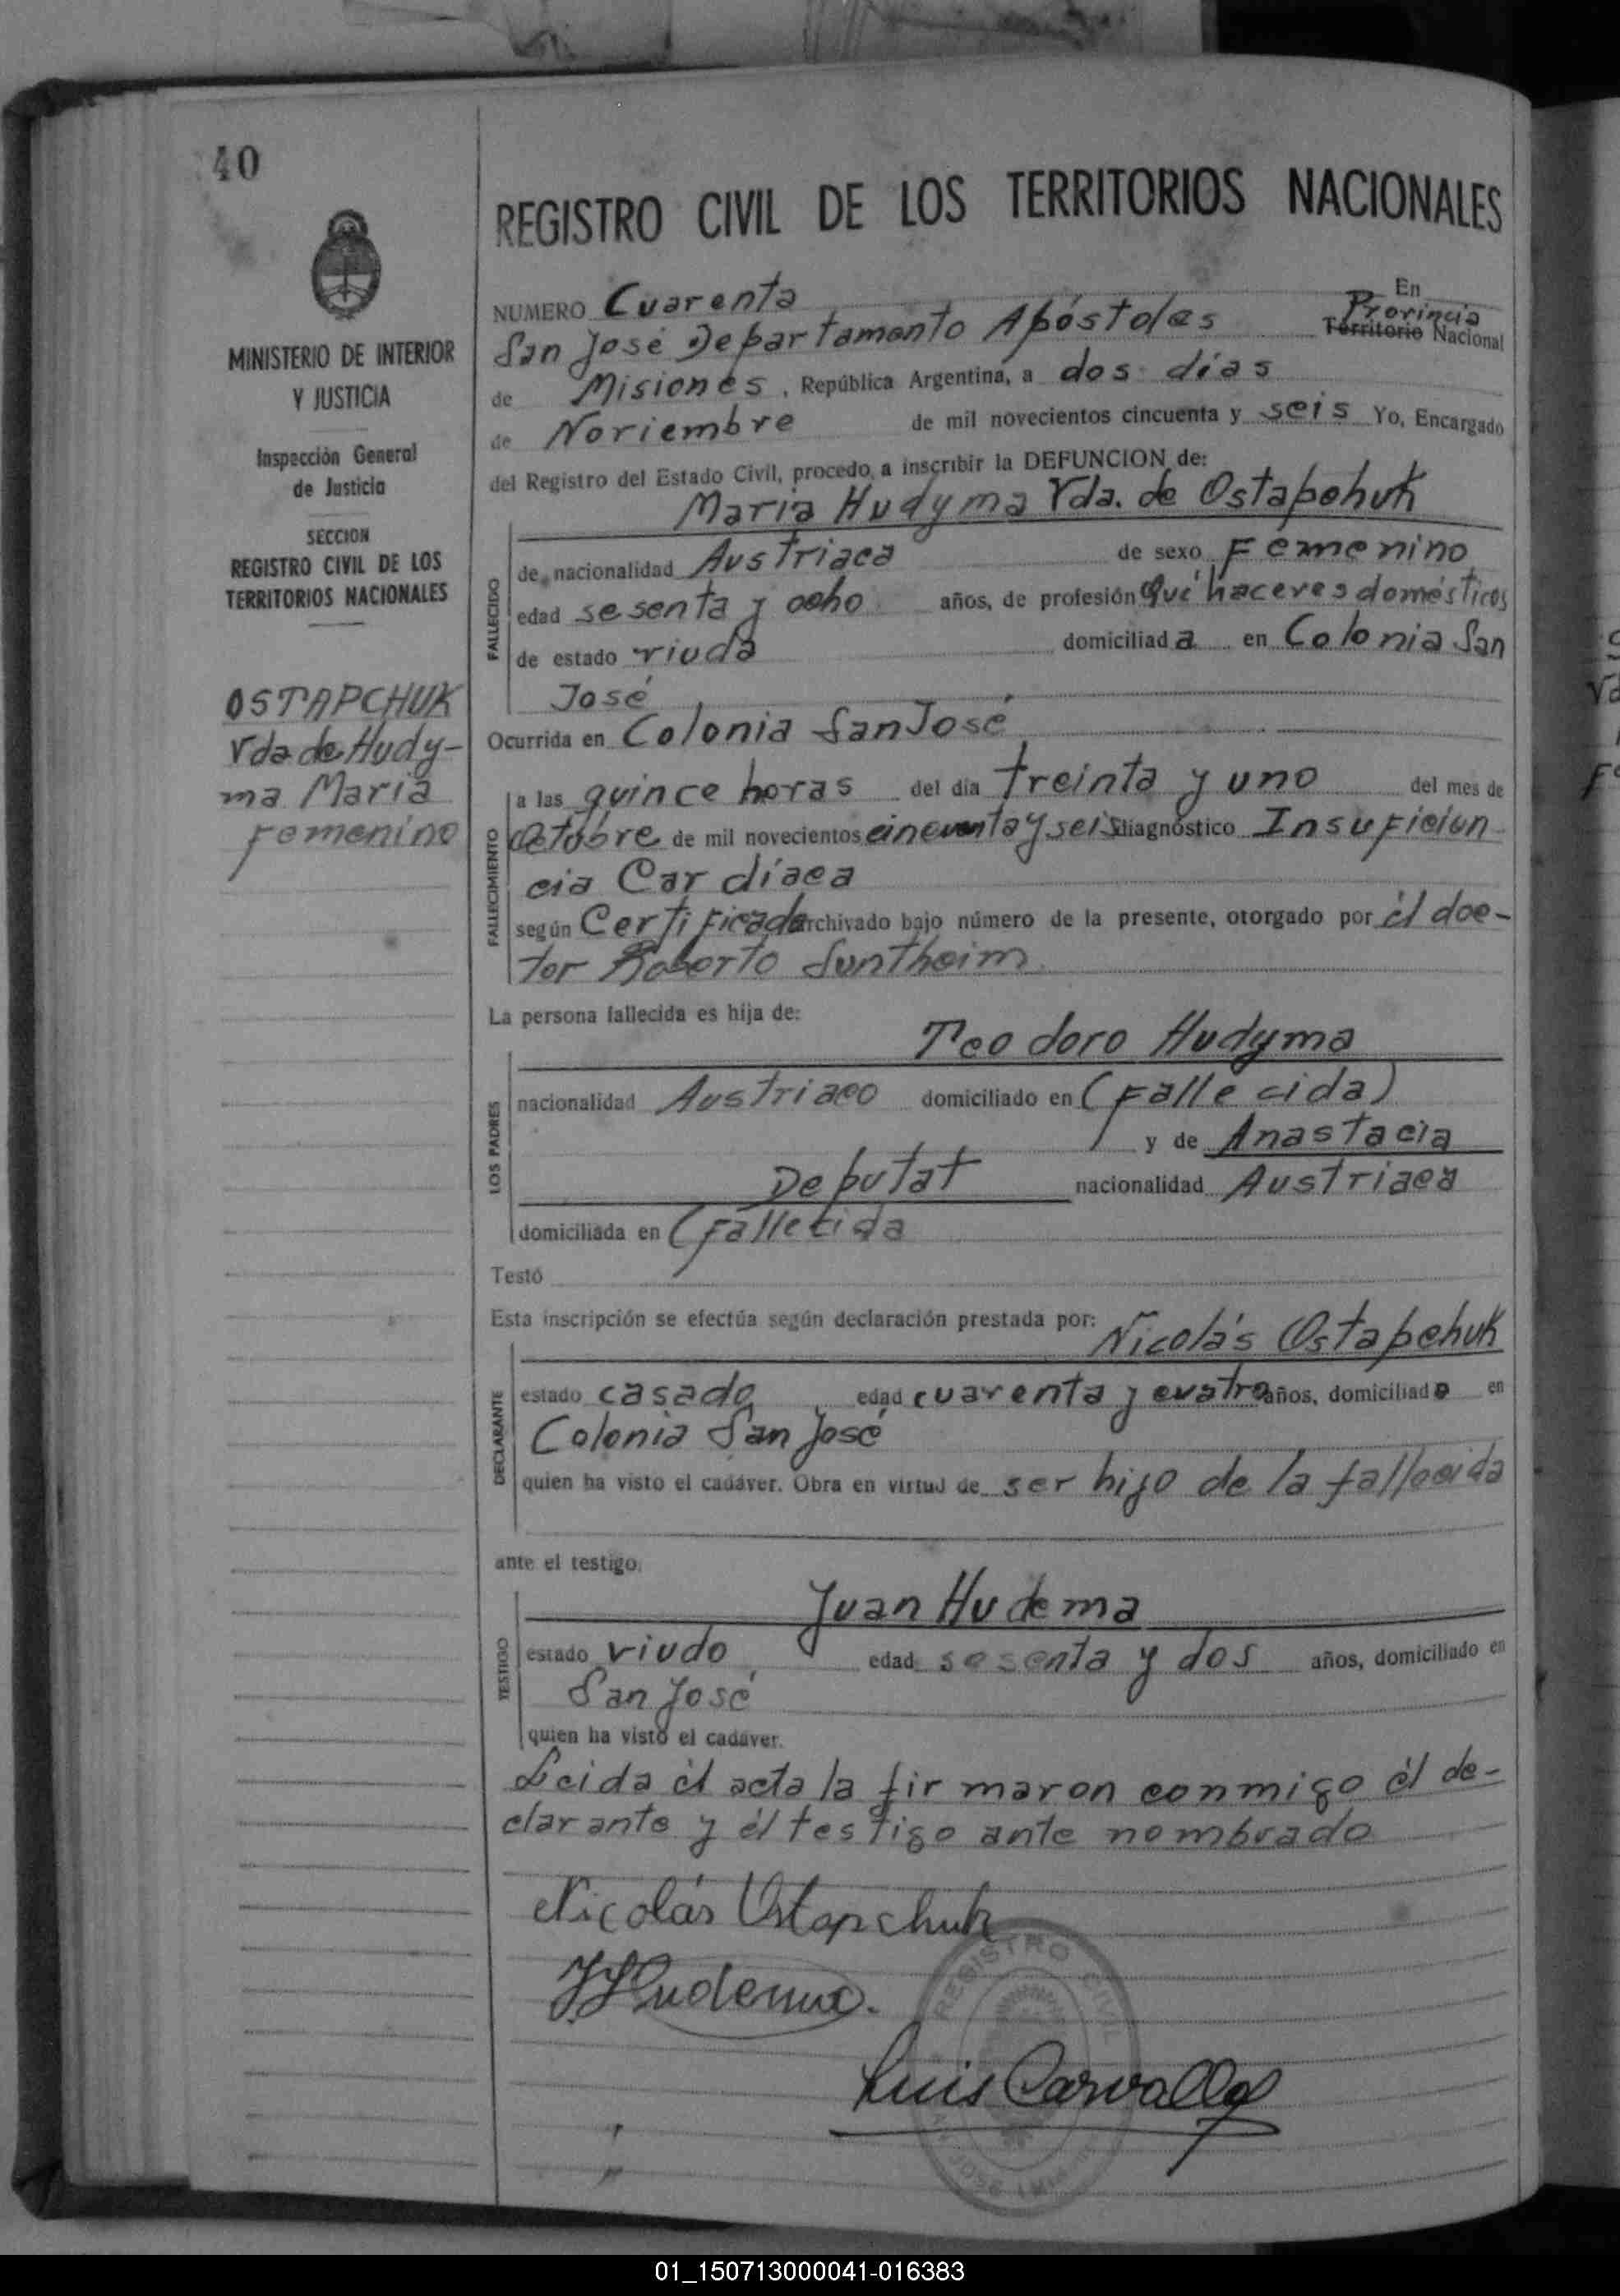 40
REGISTRO CIVIL DE LOS TERRITORIOS NACIONALES
MINISTERIO DE INTERIOR
Y JUSTICIA
Inspección General
de Justicia
SECCION
REGISTRO CIVIL DE LOS
TERRITORIOS NACIONALES
OSTAPCHUK
Vda de Hudy-
ma Maria
Femenino
NUMERO Cuarenta En
San José Departamento Apóstoles Provincia Territorio Nacional
de Misiones, República Argentina, a dos dias
de Noviembre de mil novecientos cincuenta y seis Yo, Encargado
del Registro del Estado Civil, procedo a inscribir la DEFUNCION de:
Maria Hudyma Vda. de Ostapchuk
FALLECIDO
de nacionalidad Austriaca de sexo Femenino
edad sesenta y ocho años, de profesión Qué haceres domésticos
de estado viuda domiciliada en Colonia San
José
Ocurrida en Colonia San José
FALLECIMIENTO
a las quince horas del día treinta y uno del mes de
Octubre de mil novecientos cincuenta y seis diagnóstico Insuficien
cia Cardíaca
según Certificado archivado bajo número de la presente, otorgado por él doc-
tor Roberto Suntheim
La persona fallecida es hija de:
Teodoro Hudyma
LOS PADRES
nacionalidad Austriaco domiciliado en (Fallecida)
y de Anastacia
Deputat nacionalidad Austriaca
domiciliada en (Fallecida
Testó
Esta inscripción se efectúa según declaración prestada por:
Nicolás Ostapchuk
DECLARANTE
estado casado edad cuarenta y cuatro años, domiciliado en
Colonia San José
quien ha visto el cadáver. Obra en virtud de ser hijo de la fallecida
ante el testigo
Juan Hudema
TESTIGO
estado viudo edad sesenta y dos años, domiciliado en
San José
quien ha visto el cadáver.
Leida él acta la firmaron conmigo él de-
clarante y él testigo ante nombrado
Nicolás Ostapchuk
J Hudema.
REGISTRO CIVIL
Luis Carvallo
01_150713000041-016383